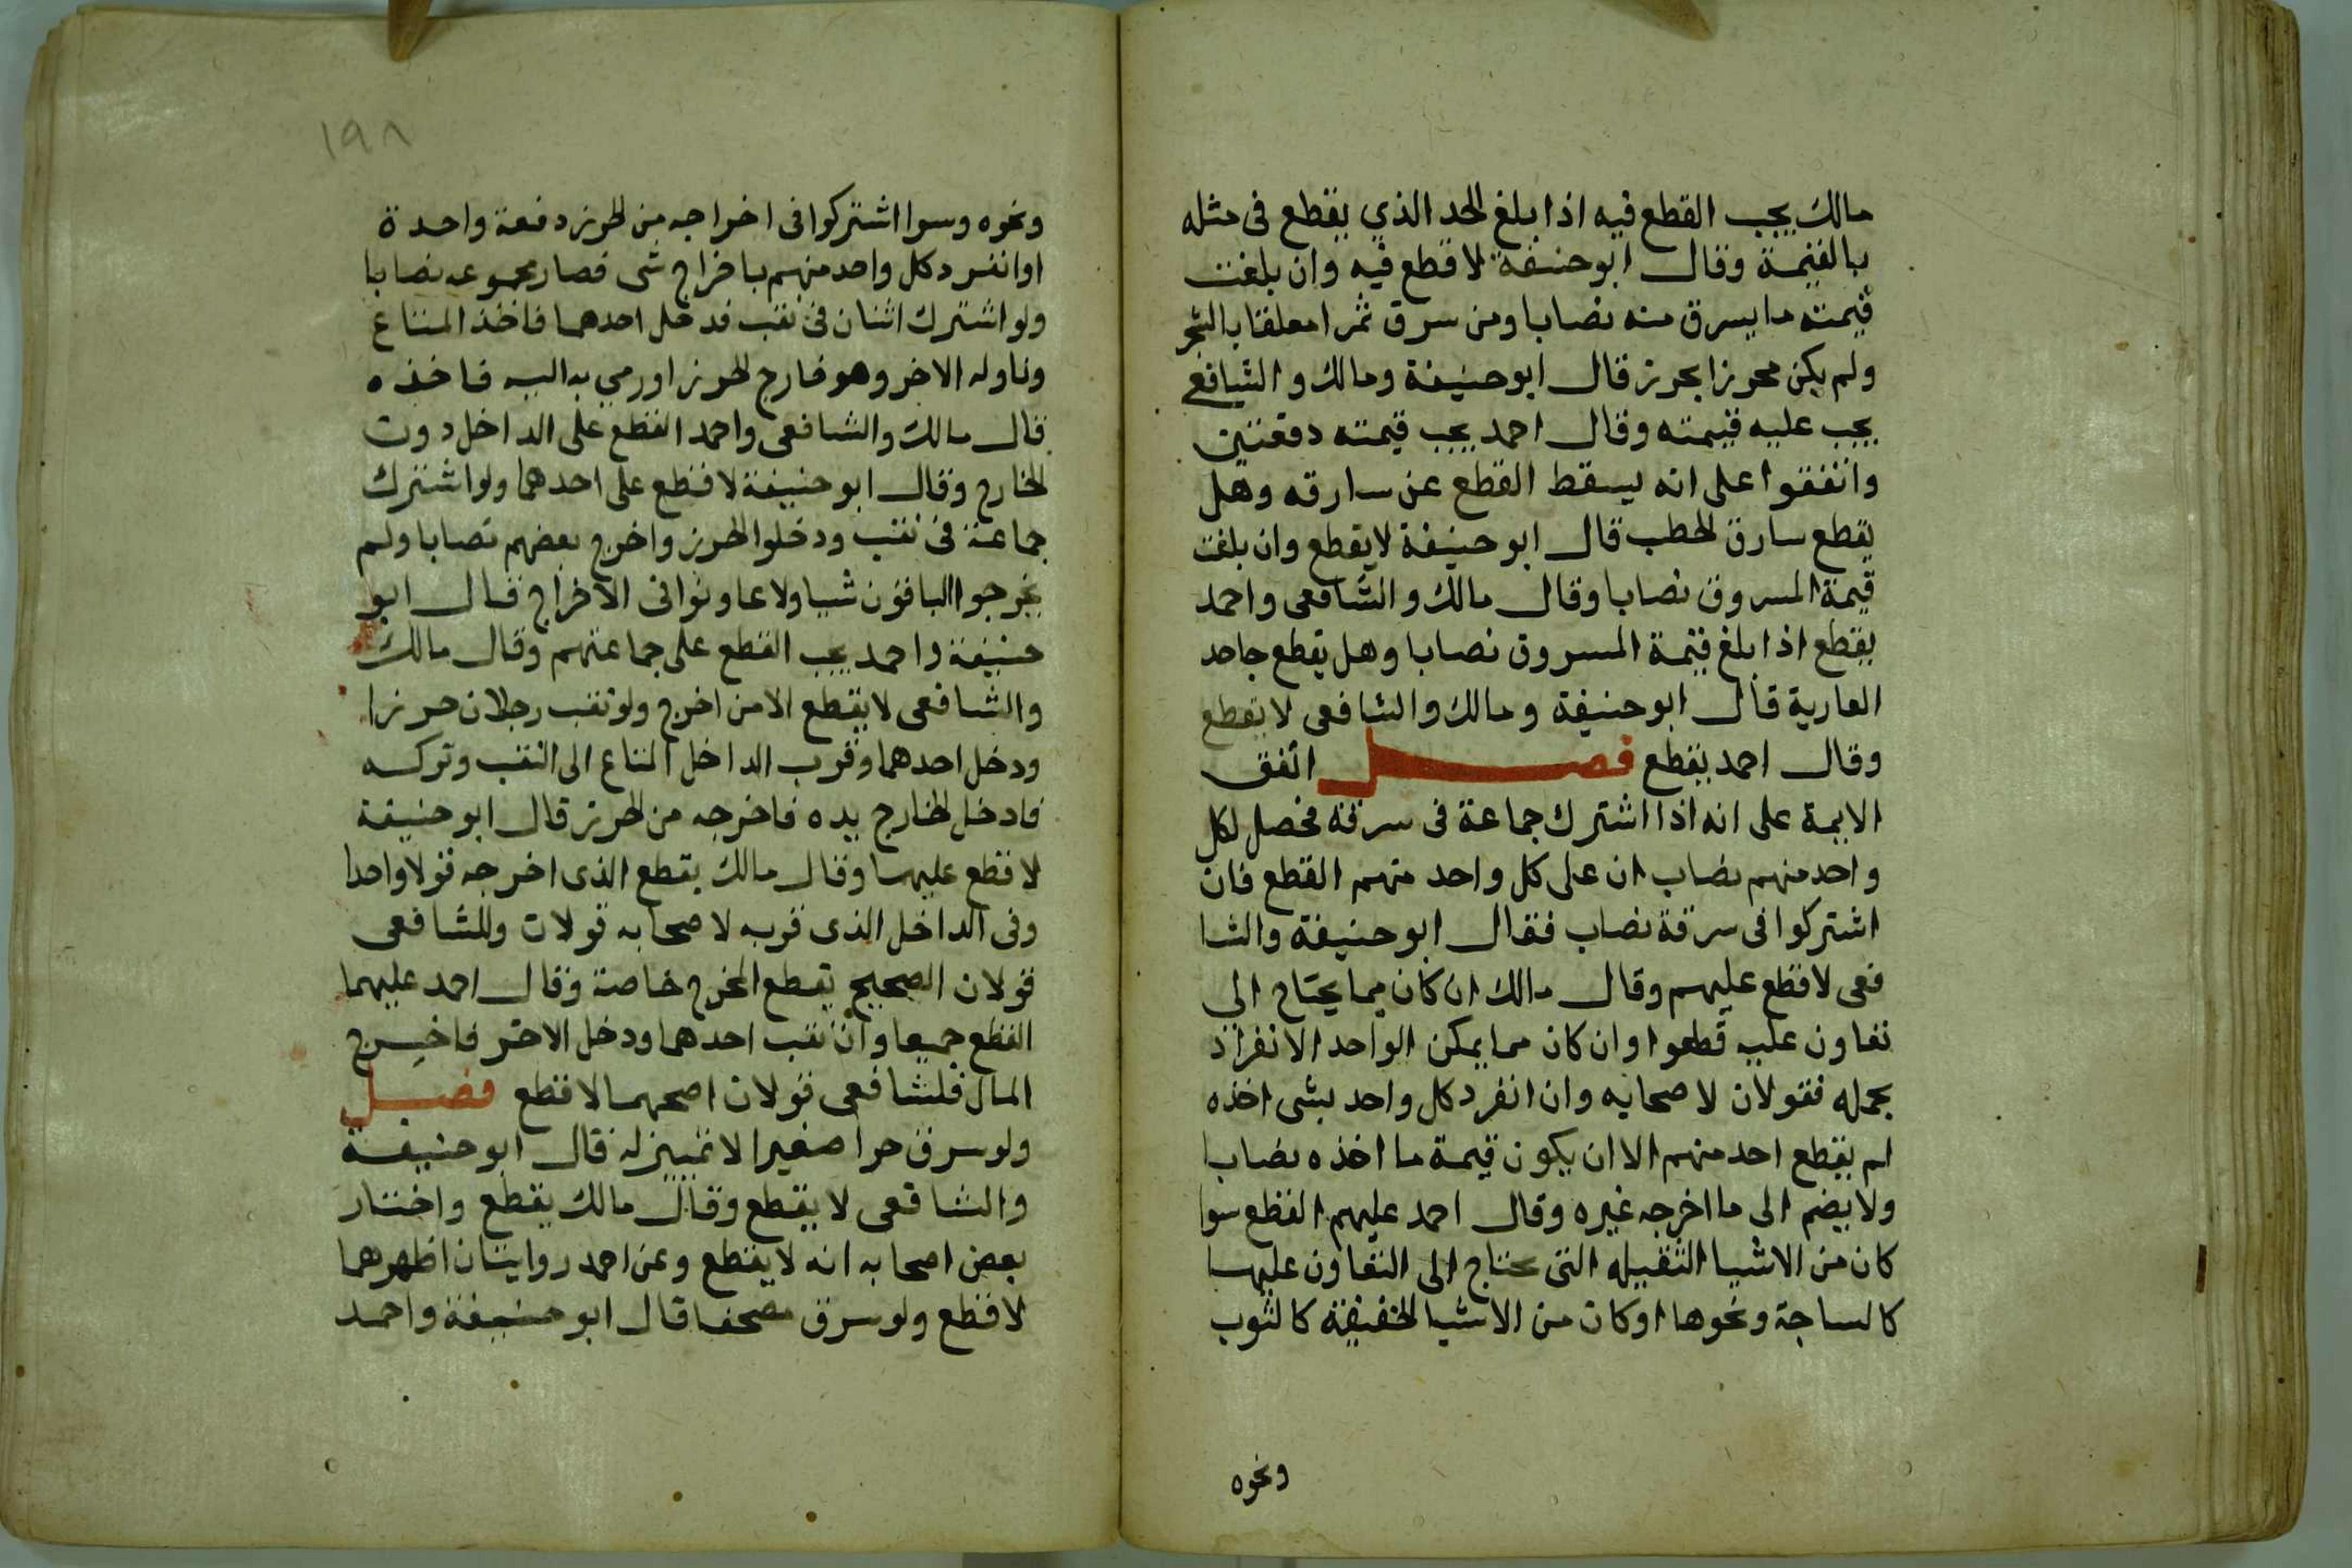 مالك يجب القطع فيه اذا بلغ الحد الذي يقطع فى مثله
بالقيمة وقال ابو حنيفة لا قطع فيه وان بلغت
قيمته ما يسرق منه نصابا ومن سرق ثمرا معلقا بالشجر
ولم يكن محرزا بحرز قال ابو حنيفة ومالك والشافعي
يجب عليه قيمته وقال احمد يجب قيمته دفعتين
واتفقوا على انه يسقط القطع عن سارقه وهل
يقطع سارق الحطب قال ابو حنيفة لا يقطع وان بلغت
قيمة المسروق نصابا وقال مالك والشافعى واحمد
يقطع اذا بلغ قيمة المسروق نصابا وهل يقطع جاحد
العارية قال ابو حنيفة ومالك والشافعى لا يقطع
وقال احمد يقطع فصل اتفق
الايمة على انه اذا اشترك جماعة فى سرقة فحصل لكل
واحد منهم نصاب ان على كل واحد منهم القطع فان
اشتركوا فى سرقة نصاب فقال ابو حنيفة والشا
فعى لا قطع عليهم وقال مالك ان كان مما يحتاج الى
تعاون عليه قطعوا وان كان مما يمكن الواحد الانفراد
بحمله فقولان لاصحابه وان انفرد كل واحد بشى اخذه
لم يقطع احد منهم الا ان يكون قيمة ما اخذه نصابا
ولا يضم الى ما اخرجه غيره وقال احمد عليهم القطع سوا
كان من الاشيا الثقيله التى تحتاج الى التعاون عليها
كالساجة ونحوها او كان من الاشيا الخفيفة كالثوب
ونحوه
١٩٨
ونحوه وسوا اشتركوا فى اخراجه من الحرز دفعة واحدة
او انفرد كل واحد منهم باخراج شى فصار مجموعه نصابا
ولو اشترك اثنان فى نقب فدخل احدهما فاخذ المتاع
وناوله الاخر وهو خارج الحرز او رمي به اليه فاخذه
قال مالك والشافعى واحمد القطع على الداخل دون
الخارج وقال ابو حنيفة لا قطع على احدهما ولو اشترك
جماعة فى نقب ودخلوا الحرز واخرج بعضهم نصابا ولم
يخرجوا الباقون شيا ولا عاونوا فى الاخراج قال ابو
حنيفة واحمد يجب القطع على جماعتهم وقال مالك
والشافعى لا يقطع الا من اخرج ولو نقب رجلان حرزا
ودخل احدهما وقرب الداخل المتاع الى النقب وتركه
فادخل الخارج يده فاخرجه من الحرز قال ابو حنيفة
لا قطع عليهما وقال مالك يقطع الذى اخرجه قولا واحدا
وفى الداخل الذى قربه لاصحابه قولان وللشافعى
قولان الصحيح يقطع المخرج خاصة وقال احمد عليهما
القطع جميعا وان نقب احدهما ودخل الاخر فاخرج
المال فلشافعى قولان اصحهما لا قطع فصل
ولو سرق حرا صغيرا لا تمييز له قال ابو حنيفة
والشافعى لا يقطع وقال مالك يقطع واختار
بعض اصحابه انه لا يقطع وعن احمد روايتان اظهرهما
لا قطع ولو سرق مصحفا قال ابو حنيفة واحمد